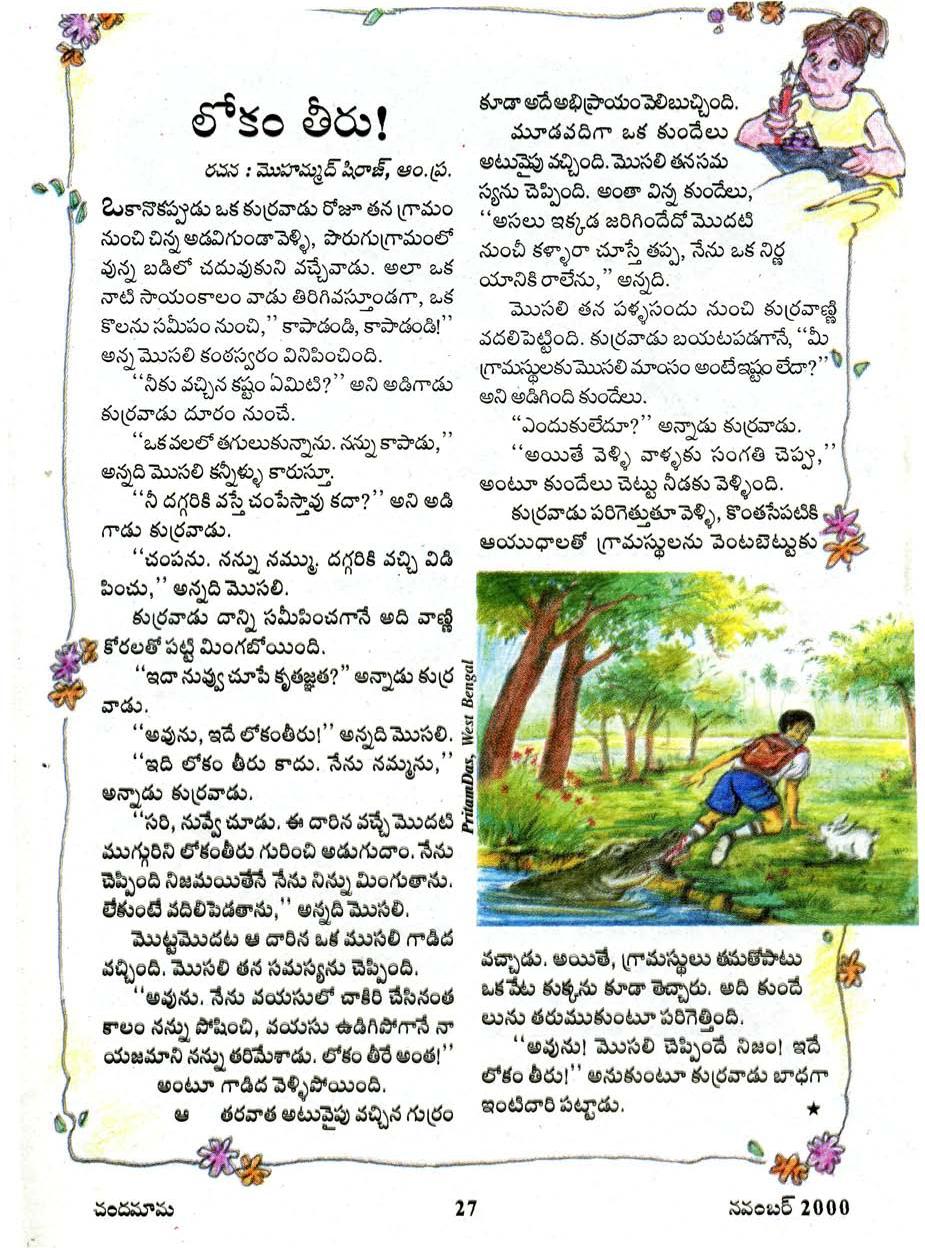 లోకం తీరు!
రచన : మొహమ్మద్ షిరాజ్, ఆం.ప్ర.
ఒకానొకప్పుడు ఒక కుర్రవాడు రోజూ తన గ్రామం
నుంచి చిన్న అడవిగుండా వెళ్ళి, పొరుగుగ్రామంలో
వున్న బడిలో చదువుకుని వచ్చేవాడు. అలా ఒక
నాటి సాయంకాలం వాడు తిరిగివస్తూండగా, ఒక
కొలను సమీపం నుంచి,'' కాపాడండి, కాపాడండి!''
అన్న మొసలి కంఠస్వరం వినిపించింది.
''నీకు వచ్చిన కష్టం ఏమిటి?'' అని అడిగాడు
కుర్రవాడు దూరం నుంచే.
''ఒకవలలో తగులుకున్నాను. నన్ను కాపాడు,''
అన్నది మొసలి కన్నీళ్ళు కారుస్తూ.
''నీ దగ్గరికి వస్తే చంపేస్తావు కదా?'' అని అడి
గాడు కుర్రవాడు.
''చంపను. నన్ను నమ్ము. దగ్గరికి వచ్చి విడి
పించు,'' అన్నది మొసలి.
కుర్రవాడు దాన్ని సమీపించగానే అది వాణ్ణి
కోరలతో పట్టి మింగబోయింది.
''ఇదా నువ్వు చూపే కృతజ్ఞత?'' అన్నాడు కుర్ర
వాడు.
''అవును, ఇదే లోకంతీరు!'' అన్నది మొసలి.
''ఇది లోకం తీరు కాదు. నేను నమ్మను,''
అన్నాడు కుర్రవాడు.
''సరి, నువ్వే చూడు. ఈ దారిన వచ్చే మొదటి
ముగ్గురిని లోకంతీరు గురించి అడుగుదాం. నేను
చెప్పింది నిజమయితేనే నేను నిన్ను మింగుతాను.
లేకుంటే వదిలిపెడతాను,'' అన్నది మొసలి.
మొట్టమొదట ఆ దారిన ఒక ముసలి గాడిద
వచ్చింది. మొసలి తన సమస్యను చెప్పింది.
''అవును. నేను వయసులో చాకిరి చేసినంత
కాలం నన్ను పోషించి, వయసు ఉడిగిపోగానే నా
యజమాని నన్ను తరిమేశాడు. లోకం తీరే అంత!''
అంటూ గాడిద వెళ్ళిపోయింది.
ఆ తరవాత అటువైపు వచ్చిన గుర్రం
కూడా అదే అభిప్రాయం వెలిబుచ్చింది.
మూడవదిగా ఒక కుందేలు
అటువైపు వచ్చింది. మొసలి తన సమ
స్యను చెప్పింది. అంతా విన్న కుందేలు,
''అసలు ఇక్కడ జరిగిందేదో మొదటి
నుంచీ కళ్ళారా చూస్తే తప్ప, నేను ఒక నిర్ణ
యానికి రాలేను,'' అన్నది.
మొసలి తన పళ్ళసందు నుంచి కుర్రవాణ్ణి
వదలిపెట్టింది. కుర్రవాడు బయటపడగానే, ''మీ
గ్రామస్థులకు మొసలి మాంసం అంటే ఇష్టం లేదా?''
అని అడిగింది కుందేలు.
''ఎందుకులేదూ?'' అన్నాడు కుర్రవాడు.
''అయితే వెళ్ళి వాళ్ళకు సంగతి చెప్పు,''
అంటూ కుందేలు చెట్టు నీడకు వెళ్ళింది.
కుర్రవాడు పరిగెత్తుతూ వెళ్ళి, కొంతసేపటికి
ఆయుధాలతో గ్రామస్థులను వెంటబెట్టుకు
PritamDas, West Bengal
వచ్చాడు. అయితే, గ్రామస్థులు తమతోపాటు
ఒకవేట కుక్కను కూడా తెచ్చారు. అది కుందే
లును తరుముకుంటూ పరిగెత్తింది.
''అవును! మొసలి చెప్పిందే నిజం! ఇదే
లోకం తీరు!'' అనుకుంటూ కుర్రవాడు బాధగా
ఇంటిదారి పట్టాడు. ★
చందమామ 27 నవంబర్ 2000